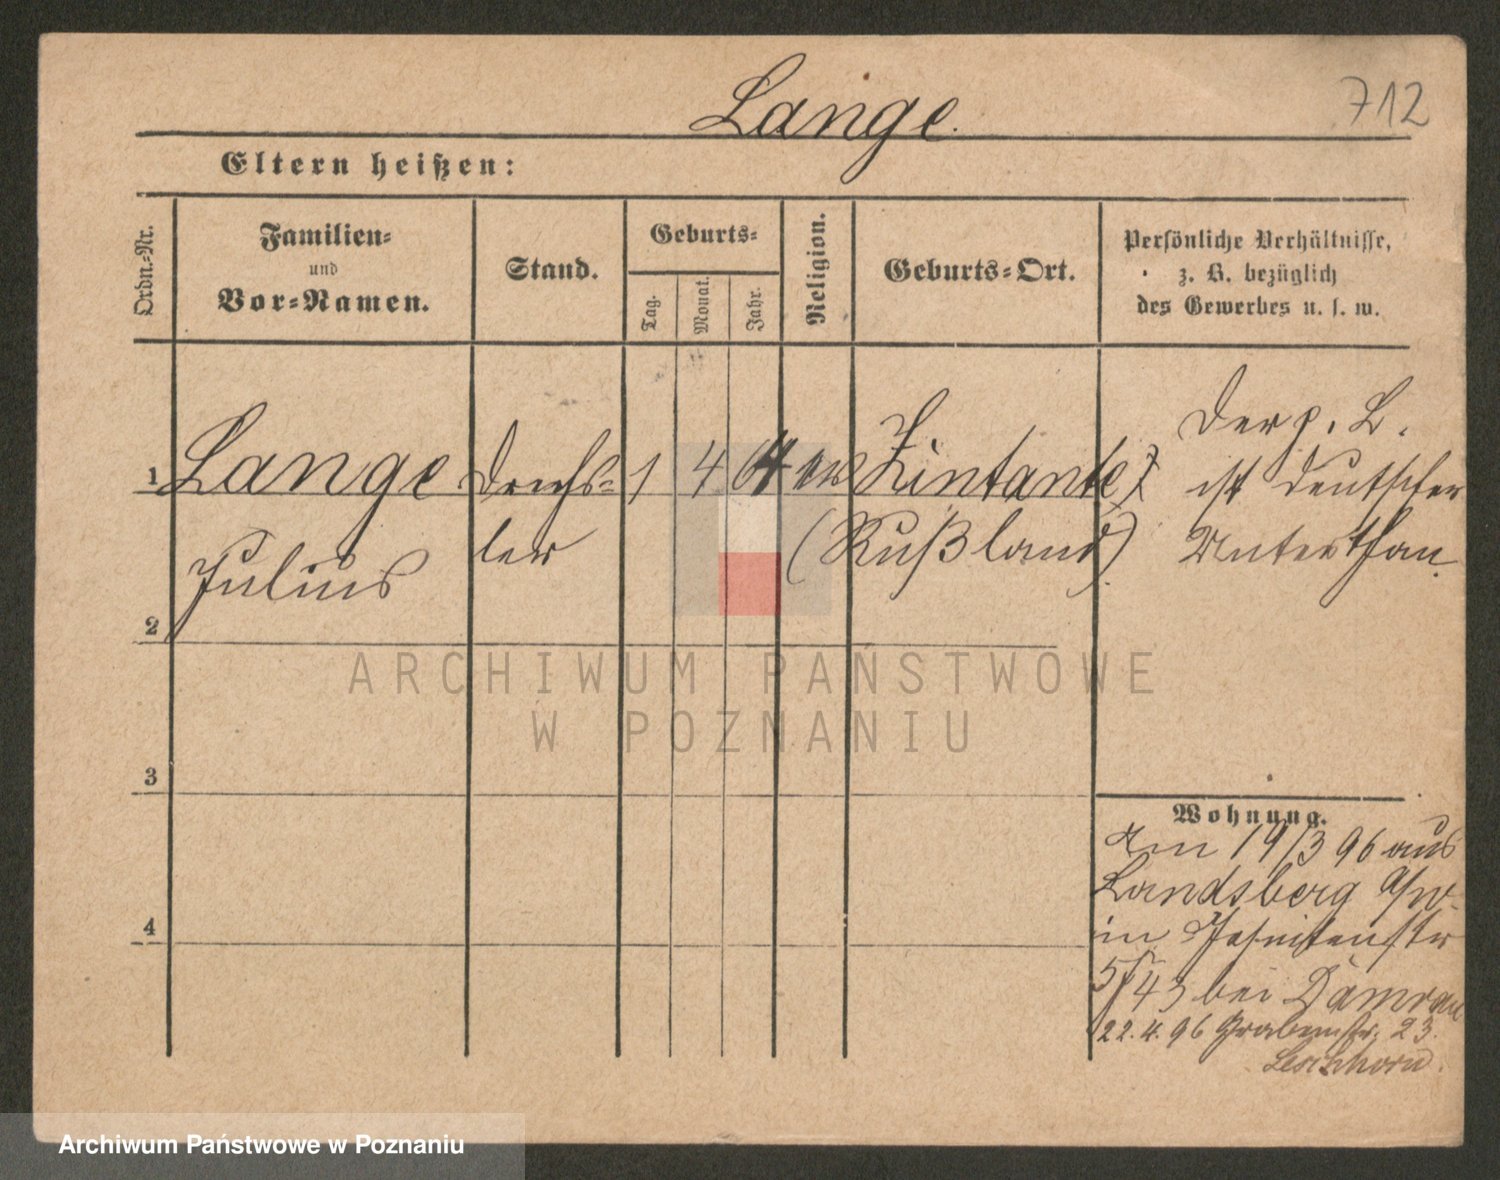 712
Lange.
Eltern heißen:
Ordn.-Nr.
Familien-
und
Vor-Namen.
Stand.
Geburts-
Tag.
Monat.
Jahr.
Religion.
Geburts-Ort.
Persönliche Verhältnisse,
z. B. bezüglich
des Gewerbes u. s. w.
1 Lange Drechs- 1 4 64
Julius ler (Rußland)
Der p. L.
ist deutscher
Unterthan.
2
3
4
Wohnung.
Am 19/3 96 aus
Landsberg a/W.
in Jesuitenstr
5/43 bei Damrau
22.4.96 Grabenstr. 23.
ARCHIWUM PAŃSTWOWE
W POZNANIU
Archiwum Państwowe w Poznaniu